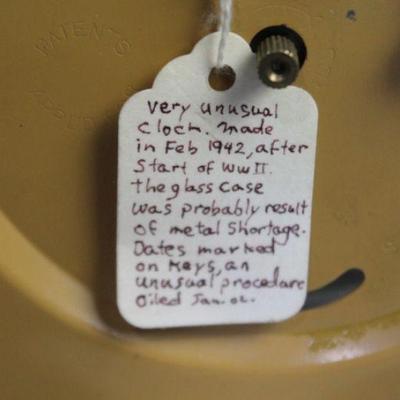 PATENTS
very unusual
Clock. made
in Feb 1942, after
Start of WWII.
the glass case
was probably result
of metal shortage.
Dates marked
on keys, an
unusual procedure
oiled Jan. 02.